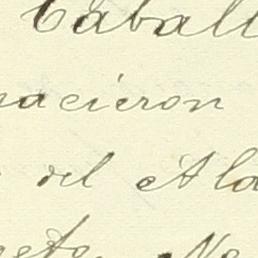 Caball
nacieron
del Ala